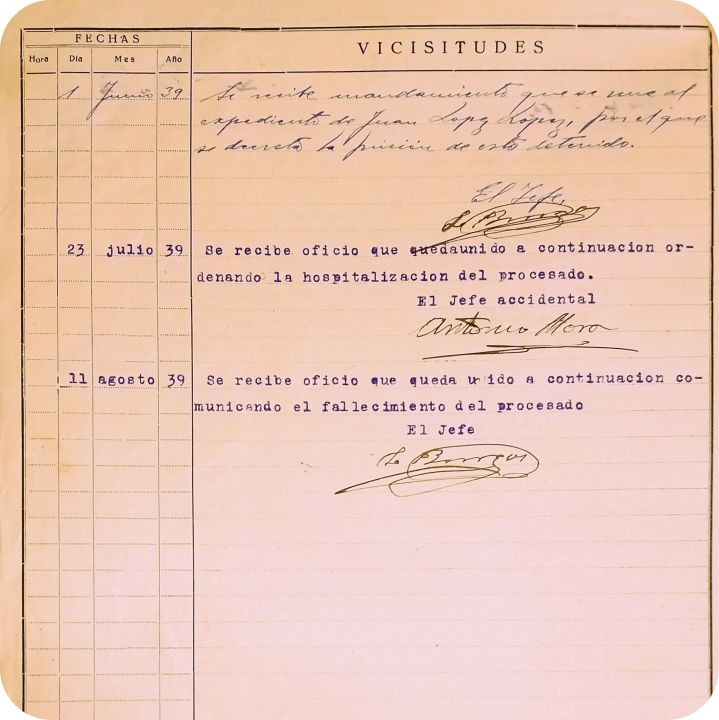 FECHAS
VICISITUDES
Hora Dia Mes Año
1 Junio 39 Se recibe mandamiento que se une al
expediente de Juan Lopez Lopez, por el que
se decreta la prision de este detenido.
El Jefe,
23 julio 39 Se recibe oficio que quedaunido a continuacion or-
denando la hospitalizacion del procesado.
El Jefe accidental
Antonio Mora
11 agosto 39 Se recibe oficio que queda unido a continuacion co-
municando el fallecimiento del procesado
El Jefe